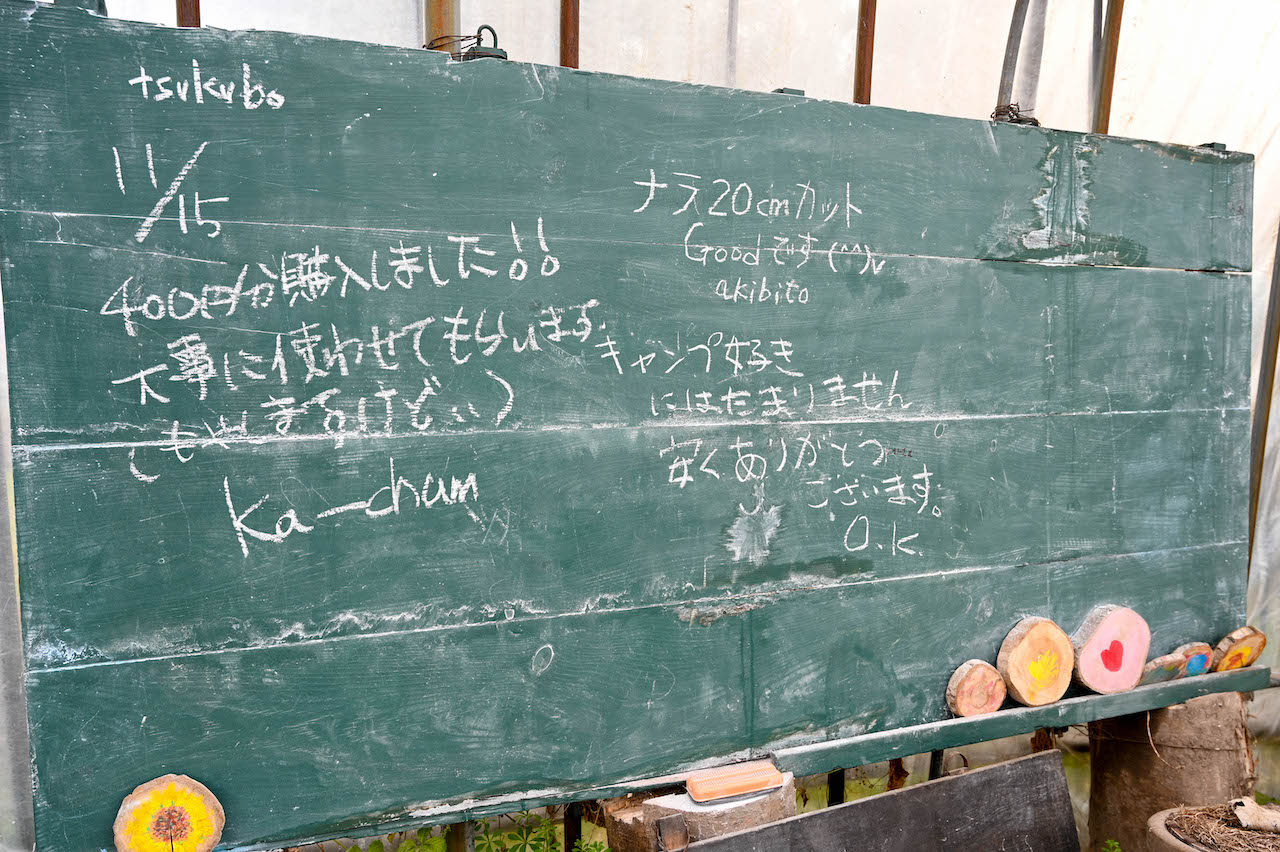 tsukubo
11/15
4000円分購入しました!!
大事に使わせてもらいます。
(もやしますけどぃぃ)
ka-chan
ナラ20cmカット
Goodです(^^)v
akibito
キャンプ好き
にはたまりません
安くありがとう
ございます。
O.K.